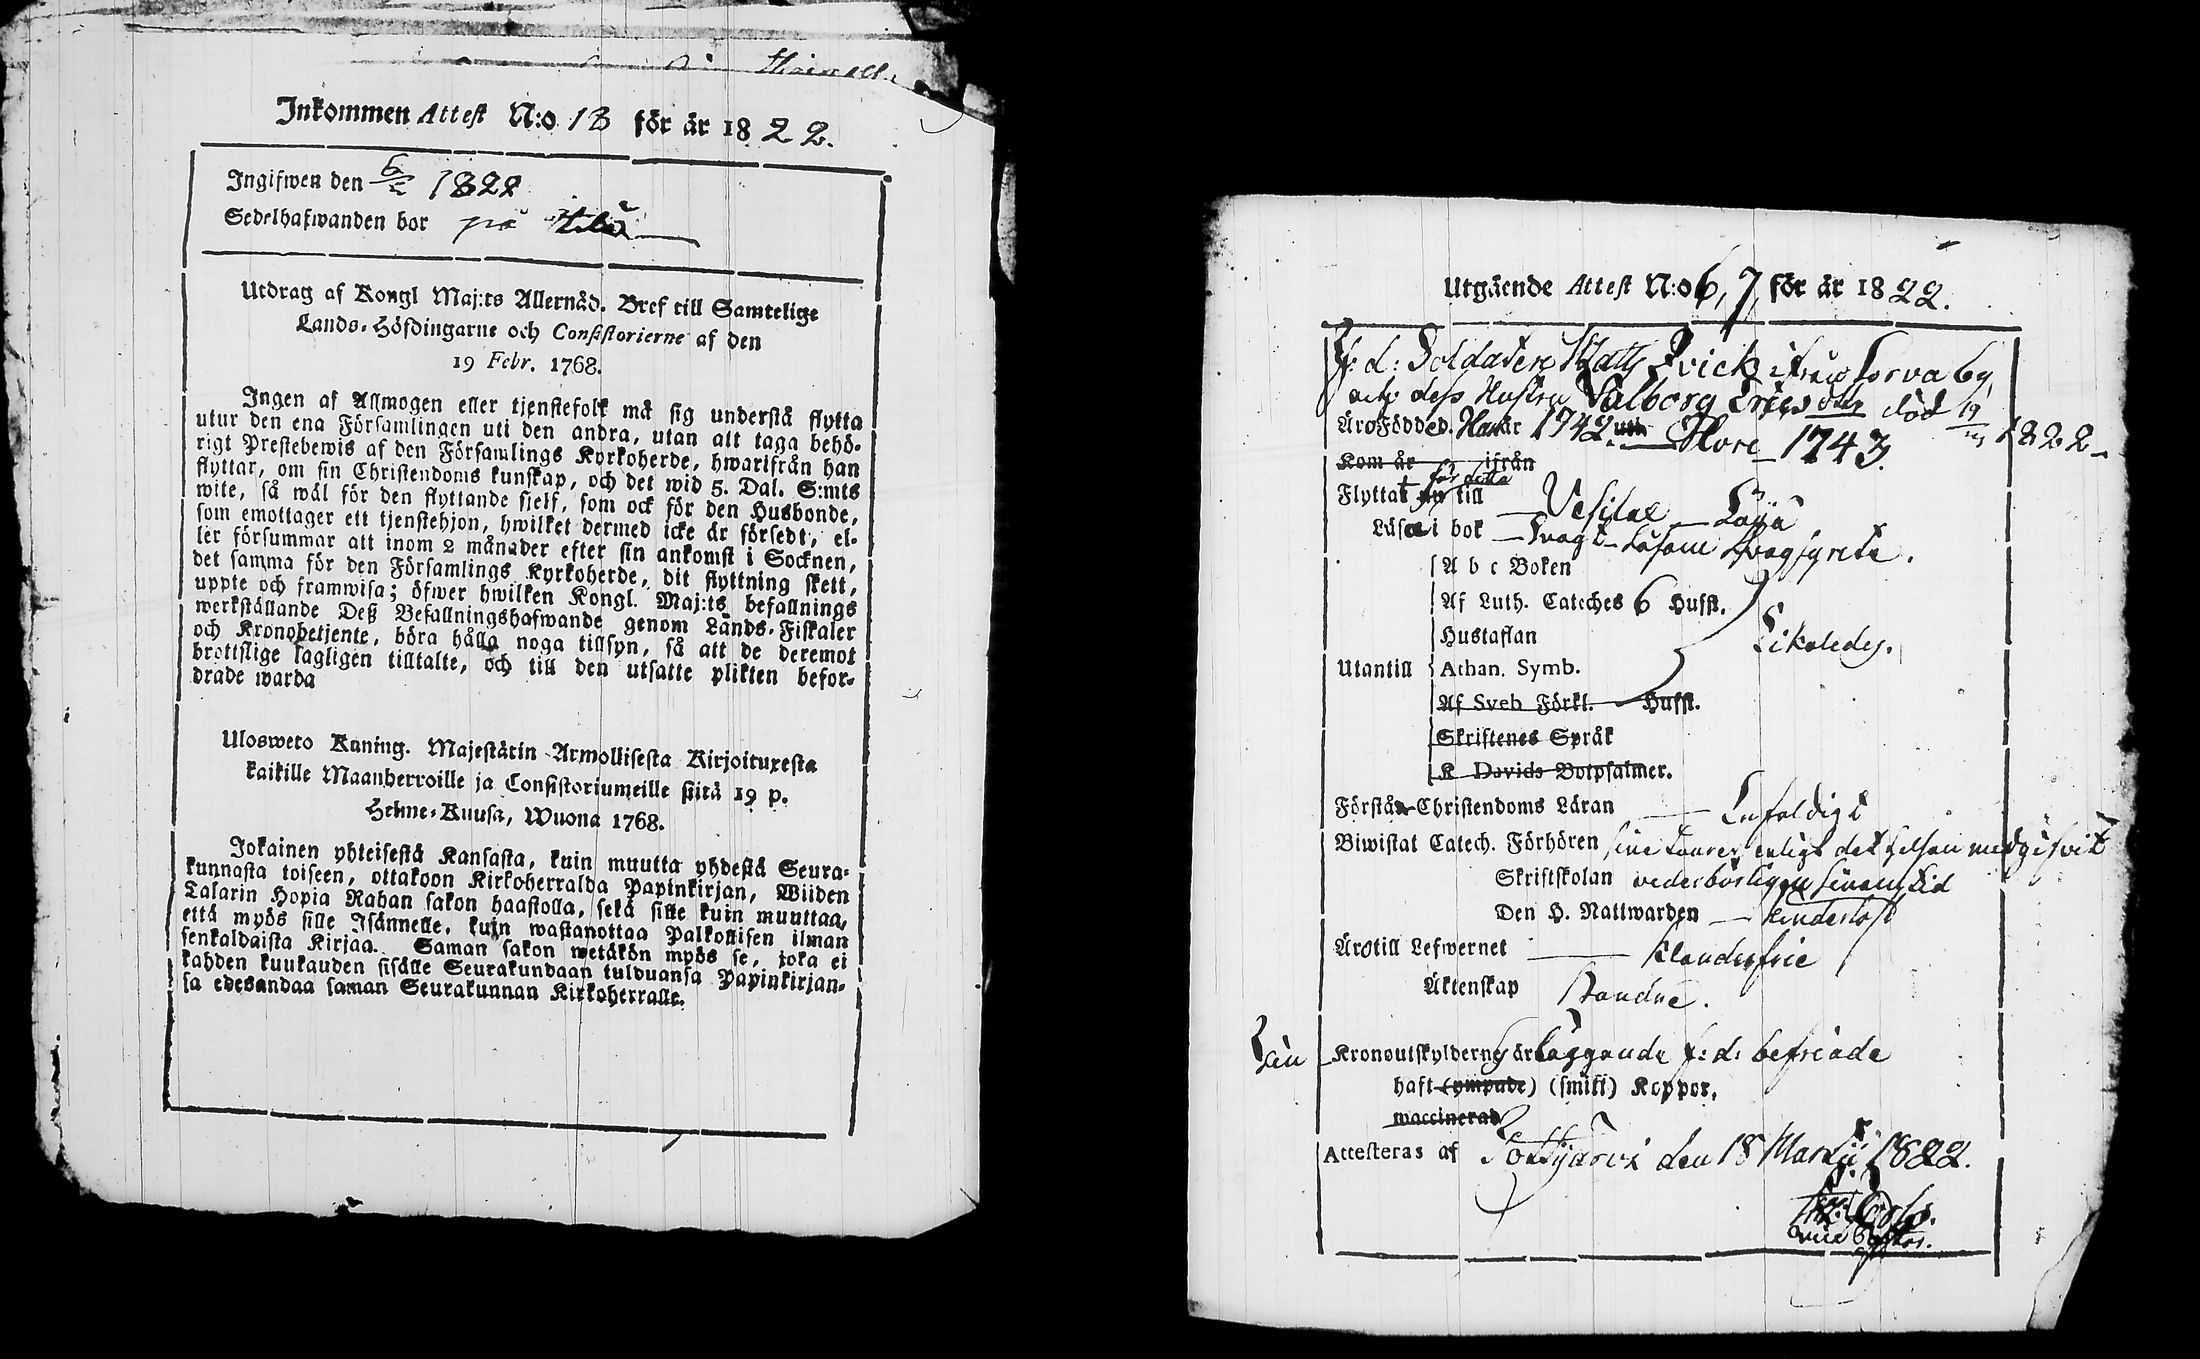 Inkommen Attest N:o 18 för år 1822.
Ingifwen den 6/5 1822
Sedelhafwanden bor på
Utdrag af Kongl Maj:ts Allernåd. Bref till Samtelige
Lands-Höfdingarne och Consistorierne af den
19 Febr. 1768.
Ingen af Allmogen eller tjenstefolk må sig understå flytta
utur den ena Församlingen uti den andra, utan att taga behö-
rigt Prestebewis af den Församlings Kyrkoherde, hwarifrån han
flyttar, om sin Christendoms kunskap, och det wid 5. Dal. S:mts
wite, så wäl för den flyttande sielf, som ock för den Husbonde,
som emottager ett tjenstehjon, hwilket dermed icke är försedt, el-
ler försummar att inom 2 månader efter sin ankomst i Socknen,
det samma för den Församlings Kyrkoherde, dit flyttning skett,
uppte och framwisa; öfwer hwilken Kongl. Maj:ts befallnings
werkställande Deß Befallningshafwande genom Lands-Fiskaler
och Kronobetjente, böra hålla noga tillsyn, så att de deremot
brottslige lagligen tilltalte, och till den utsatte plikten befor-
drade warda
Ulosweto Kuning. Majestätin Armollisesta Kirjoituxesta
kaikille Maanherroille ja Consistoriumeille siitä 19 p.
Helme-Kuusa, Wuona 1768.
Jokainen yhteisestä Kansasta, kuin muutta yhdestä Seura-
kunnasta toiseen, ottakoon Kirkoherralda Papinkirjan, Wiiden
Talarin Hopia Rahan sakon haastolla, sekä sille kuin muuttaa,
että myös sille Isännelle, kuin wastanottaa Palkollisen ilman
senkaldaista Kirjaa. Saman sakon wetäkön myös se, joka ei
kahden kuukauden sisälle Seurakundaan tulduansa Papinkirjan-
sa edesandaa saman Seurakunnan Kirkoherralle.
Utgående Attest N:o 6, 7, för år 1822.
f: d: Soldaten Matts Qvick ifrån Sorva by,
och dess Hustru Valborg Ericsdotter död 19/ 1822
Äro Födde Han år 1742. Hon 1743.
Kom år ifrån
Flyttat för detta till Vesilax
Läsa i bok Svagt
A b c Boken
Af Luth. Cateches 6 Hufst.
Hustaflan Likaledes.
Utantill Athan. Symb.
Af Sveb Förkl. Hufst.
Skriftenes Språk
K Davids Botpsalmer.
Förstå Christendoms Läran Enfaldigt
Biwistat Catech. Förhören
Skriftskolan vederbörligen
Den H. Nattwarden
Äro till Lefwernet Klanderfrie
Äktenskap
Kronoutskylderne är f: d: befriade
haft (ympade) (smitt) Koppor.
waccinerad
Attesteras af Tottijärvi den 18 Martii 1822.